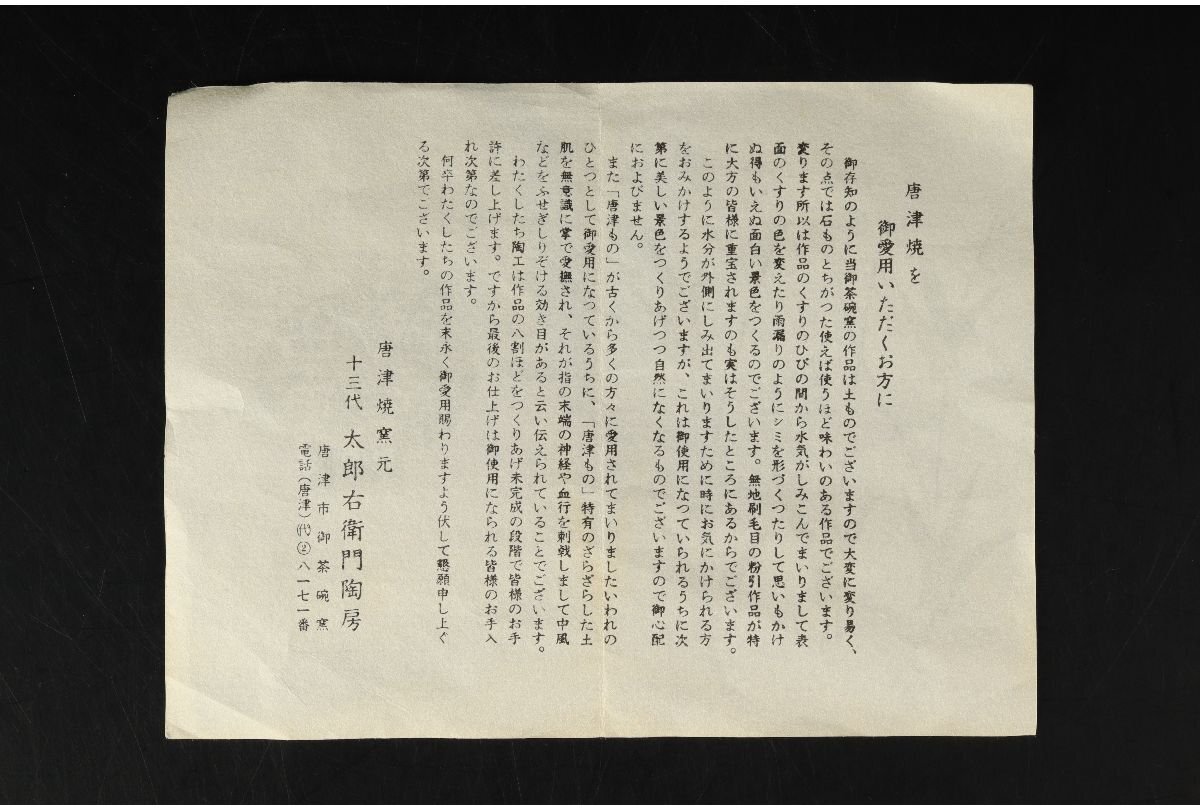 唐津焼を
御愛用いただくお方に
御存知のように当御茶碗窯の作品は土ものでございますので大変に変り易く、
その点では石ものとちがつた使えば使うほど味わいのある作品でございます。
変ります所以は作品のくすりのひびの間から水気がしみこんでまいりまして表
面のくすりの色を変えたり雨漏りのようにシミを形づくつたりして思いもかけ
ぬ得もいえぬ面白い景色をつくるのでございます。無地刷毛目の粉引作品が特
に大方の皆様に重宝されますのも実はそうしたところにあるからでございます。
このように水分が外側にしみ出てまいりますために時にお気にかけられる方
をおみかけするようでございますが、これは御使用になつていられるうちに次
第に美しい景色をつくりあげつつ自然になくなるものでございますので御心配
におよびません。
また「唐津もの」が古くから多くの方々に愛用されてまいりましたいわれの
ひとつとして御愛用になつているうちに、「唐津もの」特有のざらざらした土
肌を無意識に掌で愛撫され、それが指の末端の神経や血行を刺戟しまして中風
などをふせぎしりぞける効き目があると云い伝えられていることでございます。
わたくしたち陶工は作品の八割ほどをつくりあげ未完成の段階で皆様のお手
許に差し上げます。ですから最後のお仕上げは御使用になられる皆様のお手入
れ次第なのでございます。
何卒わたくしたちの作品を末永く御愛用賜わりますよう伏して懇願申し上ぐ
る次第でございます。
唐津焼窯元
十三代 太郎右衛門陶房
唐津市御茶碗窯
電話(唐津)㈹②八一七一番